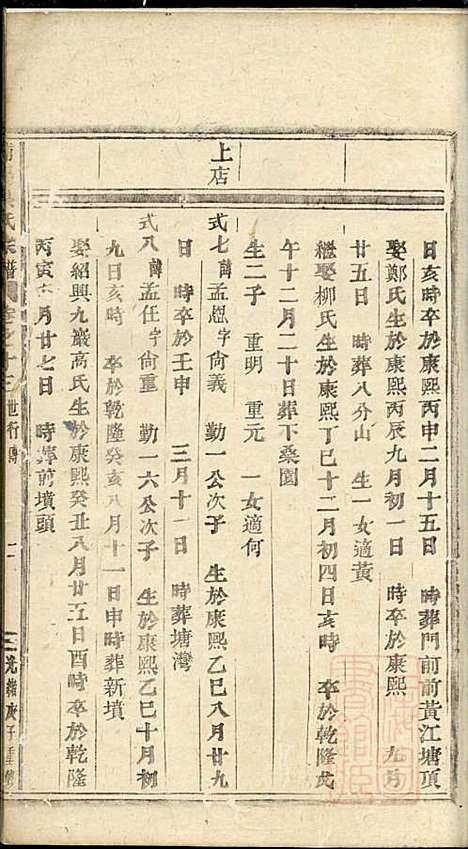 日亥時卒於康熙丙申二月十五日　時葬門前前黃江塘頂
娶鄭氏生於康熙丙辰九月初一日　時卒於康熙　九月
廿五日　時葬八分山　生一女適黃
繼娶柳氏生於康熙丁巳十二月初四日亥時　卒於乾隆戊
午十二月二十日葬下桑園
生二子　重明　重元　一女適何
上店
式七諱孟愷字尚義　勤一公次子　生於康熙乙巳八月廿九
日　時卒於壬申　三月十一日　時葬塘灣
式八諱孟任字尚重　勤一六公次子　生於康熙乙巳十月初
九日亥時　卒於乾隆癸亥八月十一日申時葬新墳
娶紹興九巖高氏生於康熙癸丑八月廿五日酉時卒於乾隆
丙寅六月廿七日　時葬前墳頭
氏宗譜 卷之十三 世行傳 光緒庚子重修